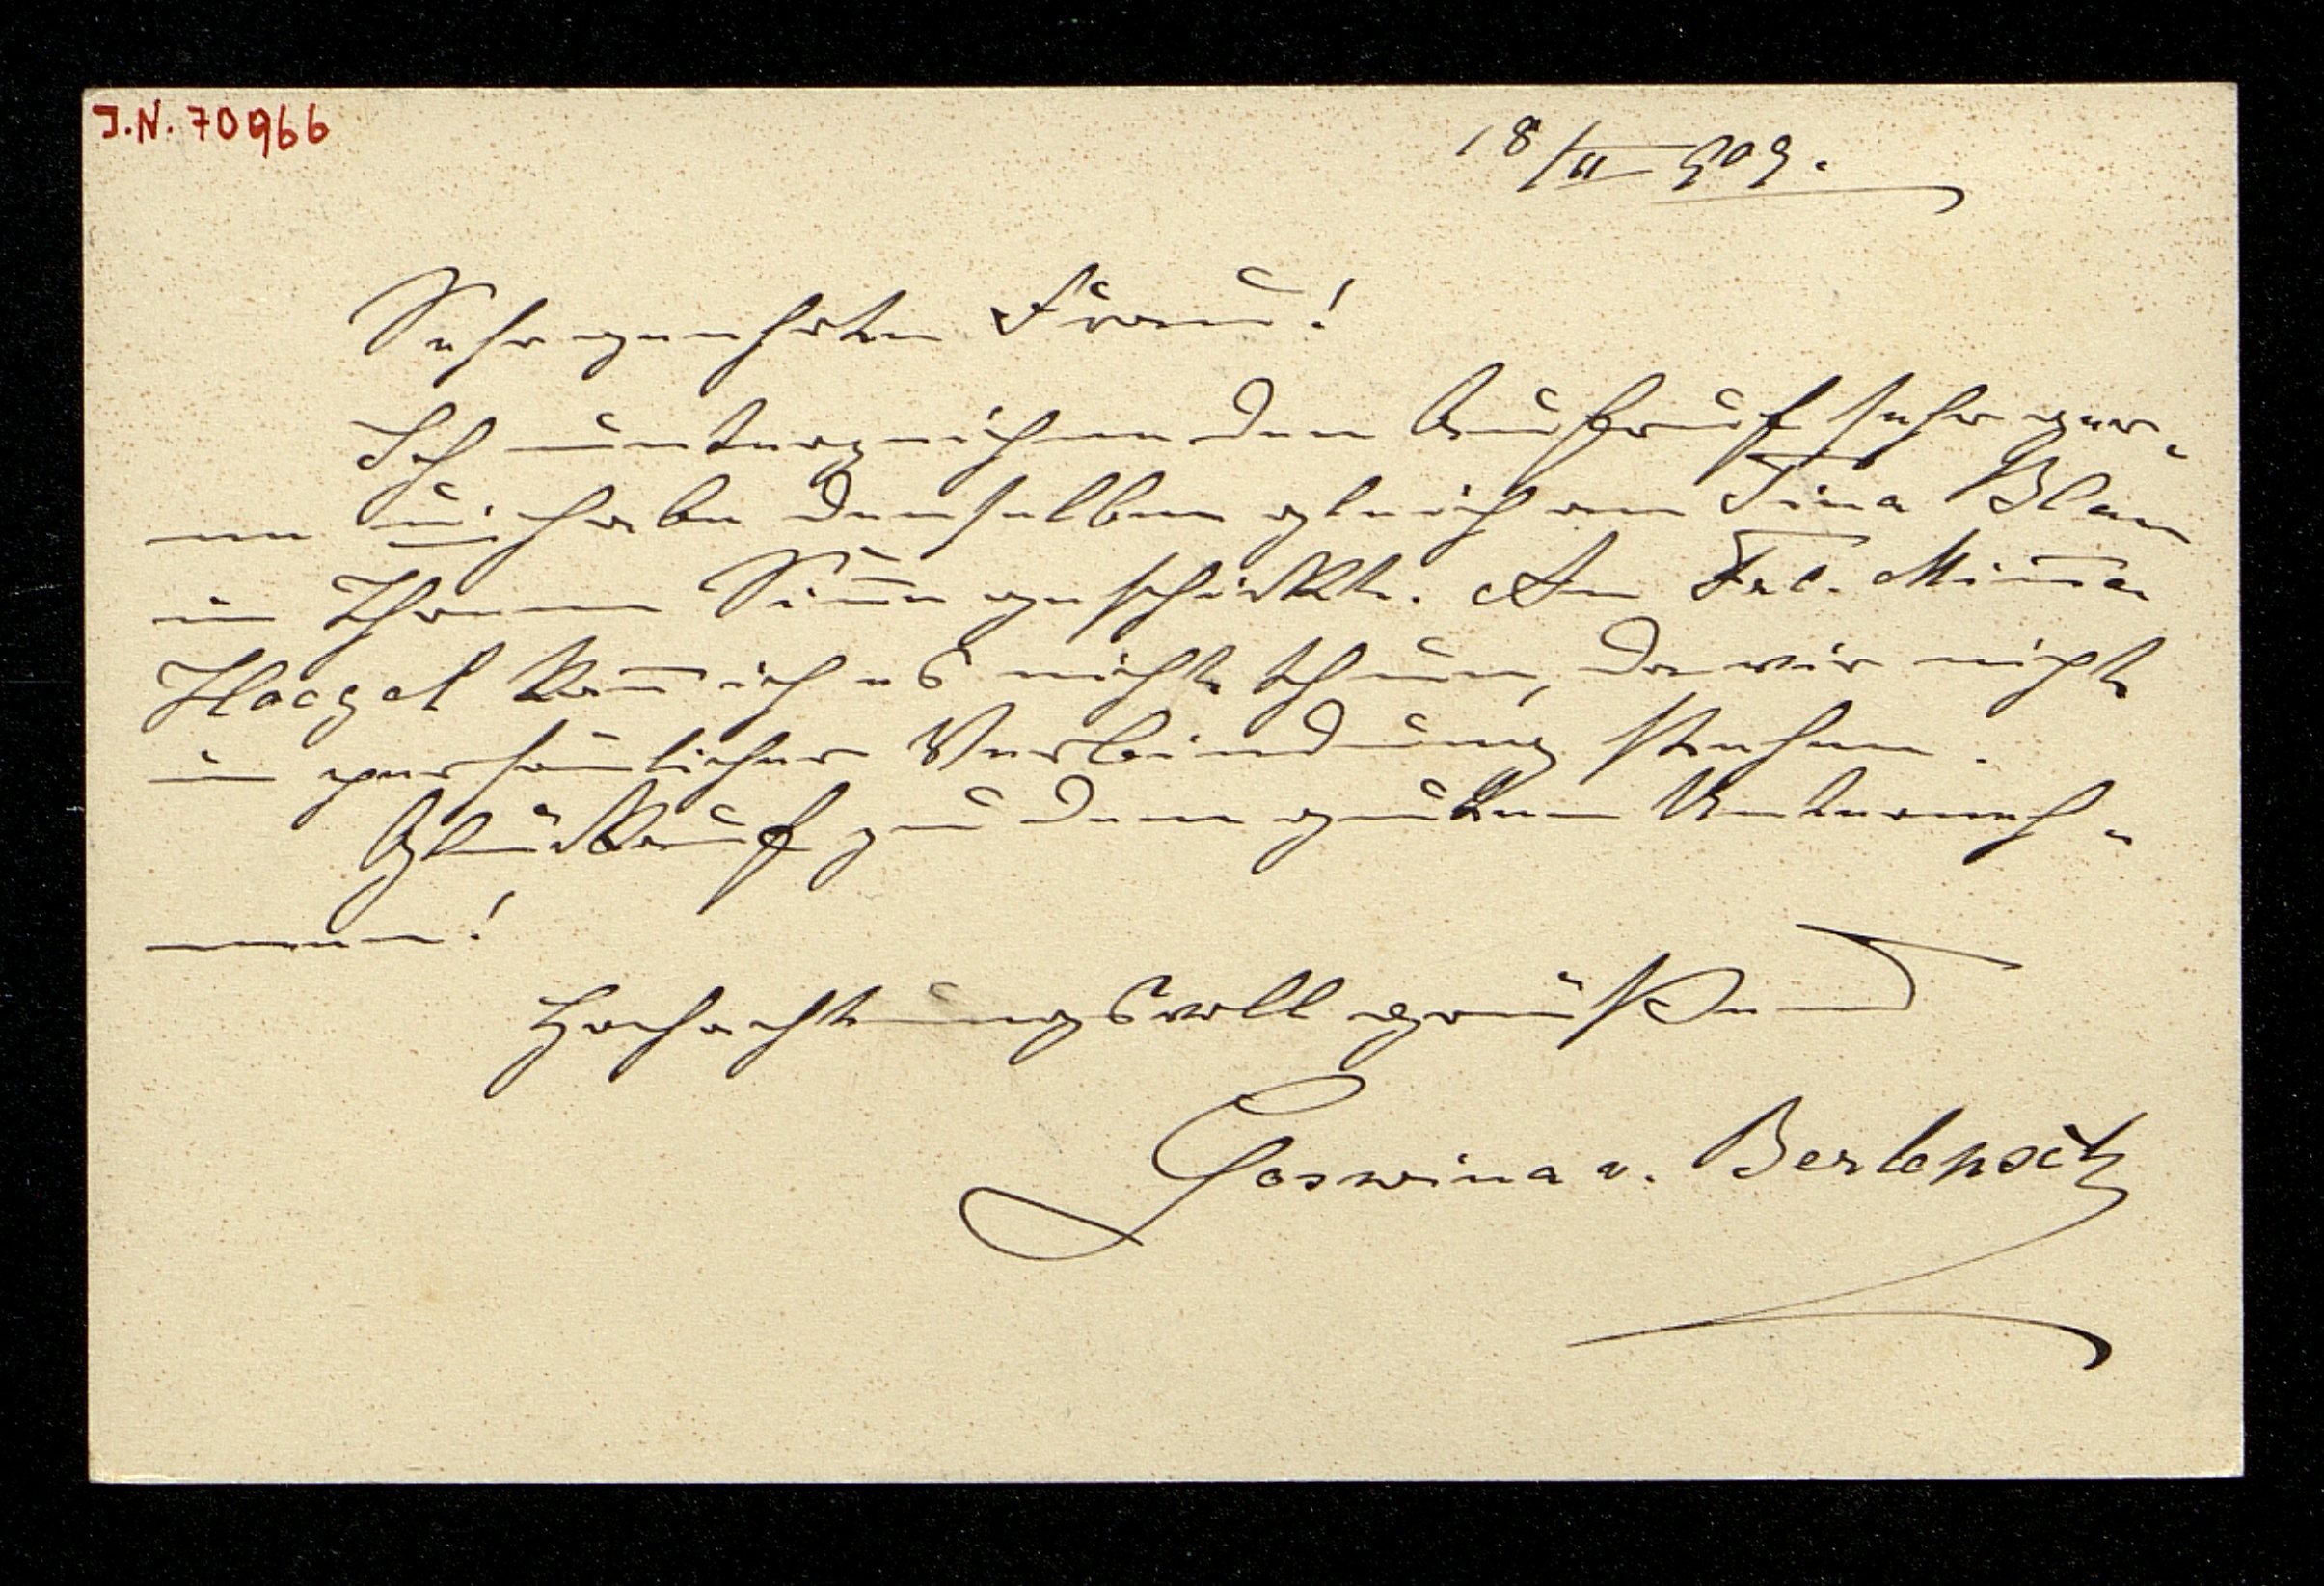 J.N. 70966
18/II 909.
Sehr geehrte Frau!
Ich unterzeichne den Aufruf sehr ger-
ne u. habe denselben gleich an Tina Blau
in Ihrem Sinne geschickt. An Frl. Minna
Hoegel kann ich es nicht thun, da wir nicht
in persönlicher Verbindung stehen.
Glückauf zu dem guten Unterneh-
men!
Hochachtungsvoll grüßend
Goswina v. Berlepsch